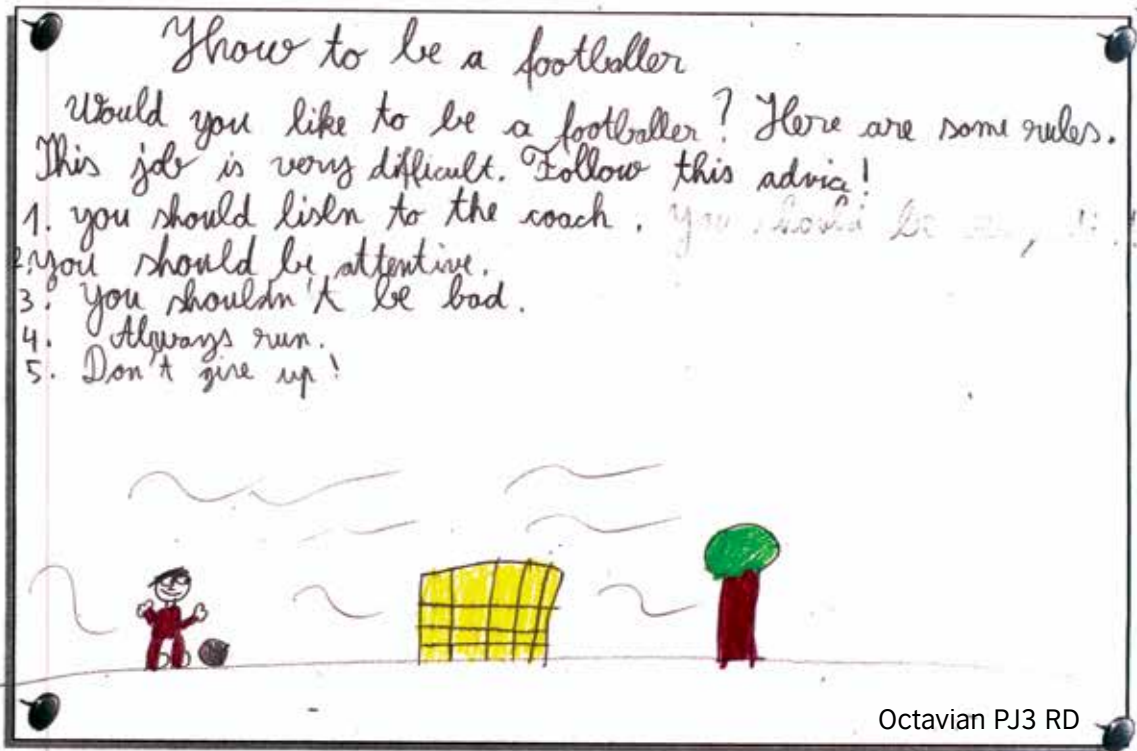 Yhow to be a footballer
Would you like to be a footballer? Here are some rules.
This job is very difficult. Follow this advic!
1. you should lisln to the coach. You should be
2. you should be attentive.
3. you shouldn't be bad.
4. Always run.
5. Don't give up!
Octavian PJ3 RD